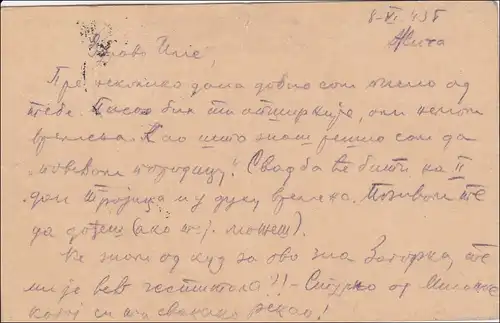 8-VI 43 г
Жича
Здраво Иле,
Пре неколико дана добио сам писмо од
тебе. Писао бих ти опширније, али немам
времена. Као што знаш решио сам да
"повећам породицу". Свадба ће бити на II
дан тројица и у духу времена. Позивам те
да дођеш (ако то ј. можеш).
Не знам од куд за ово зна Загорка, те
ми је већ честитала?! - Сигурно од
којој си ти свакако рекао!